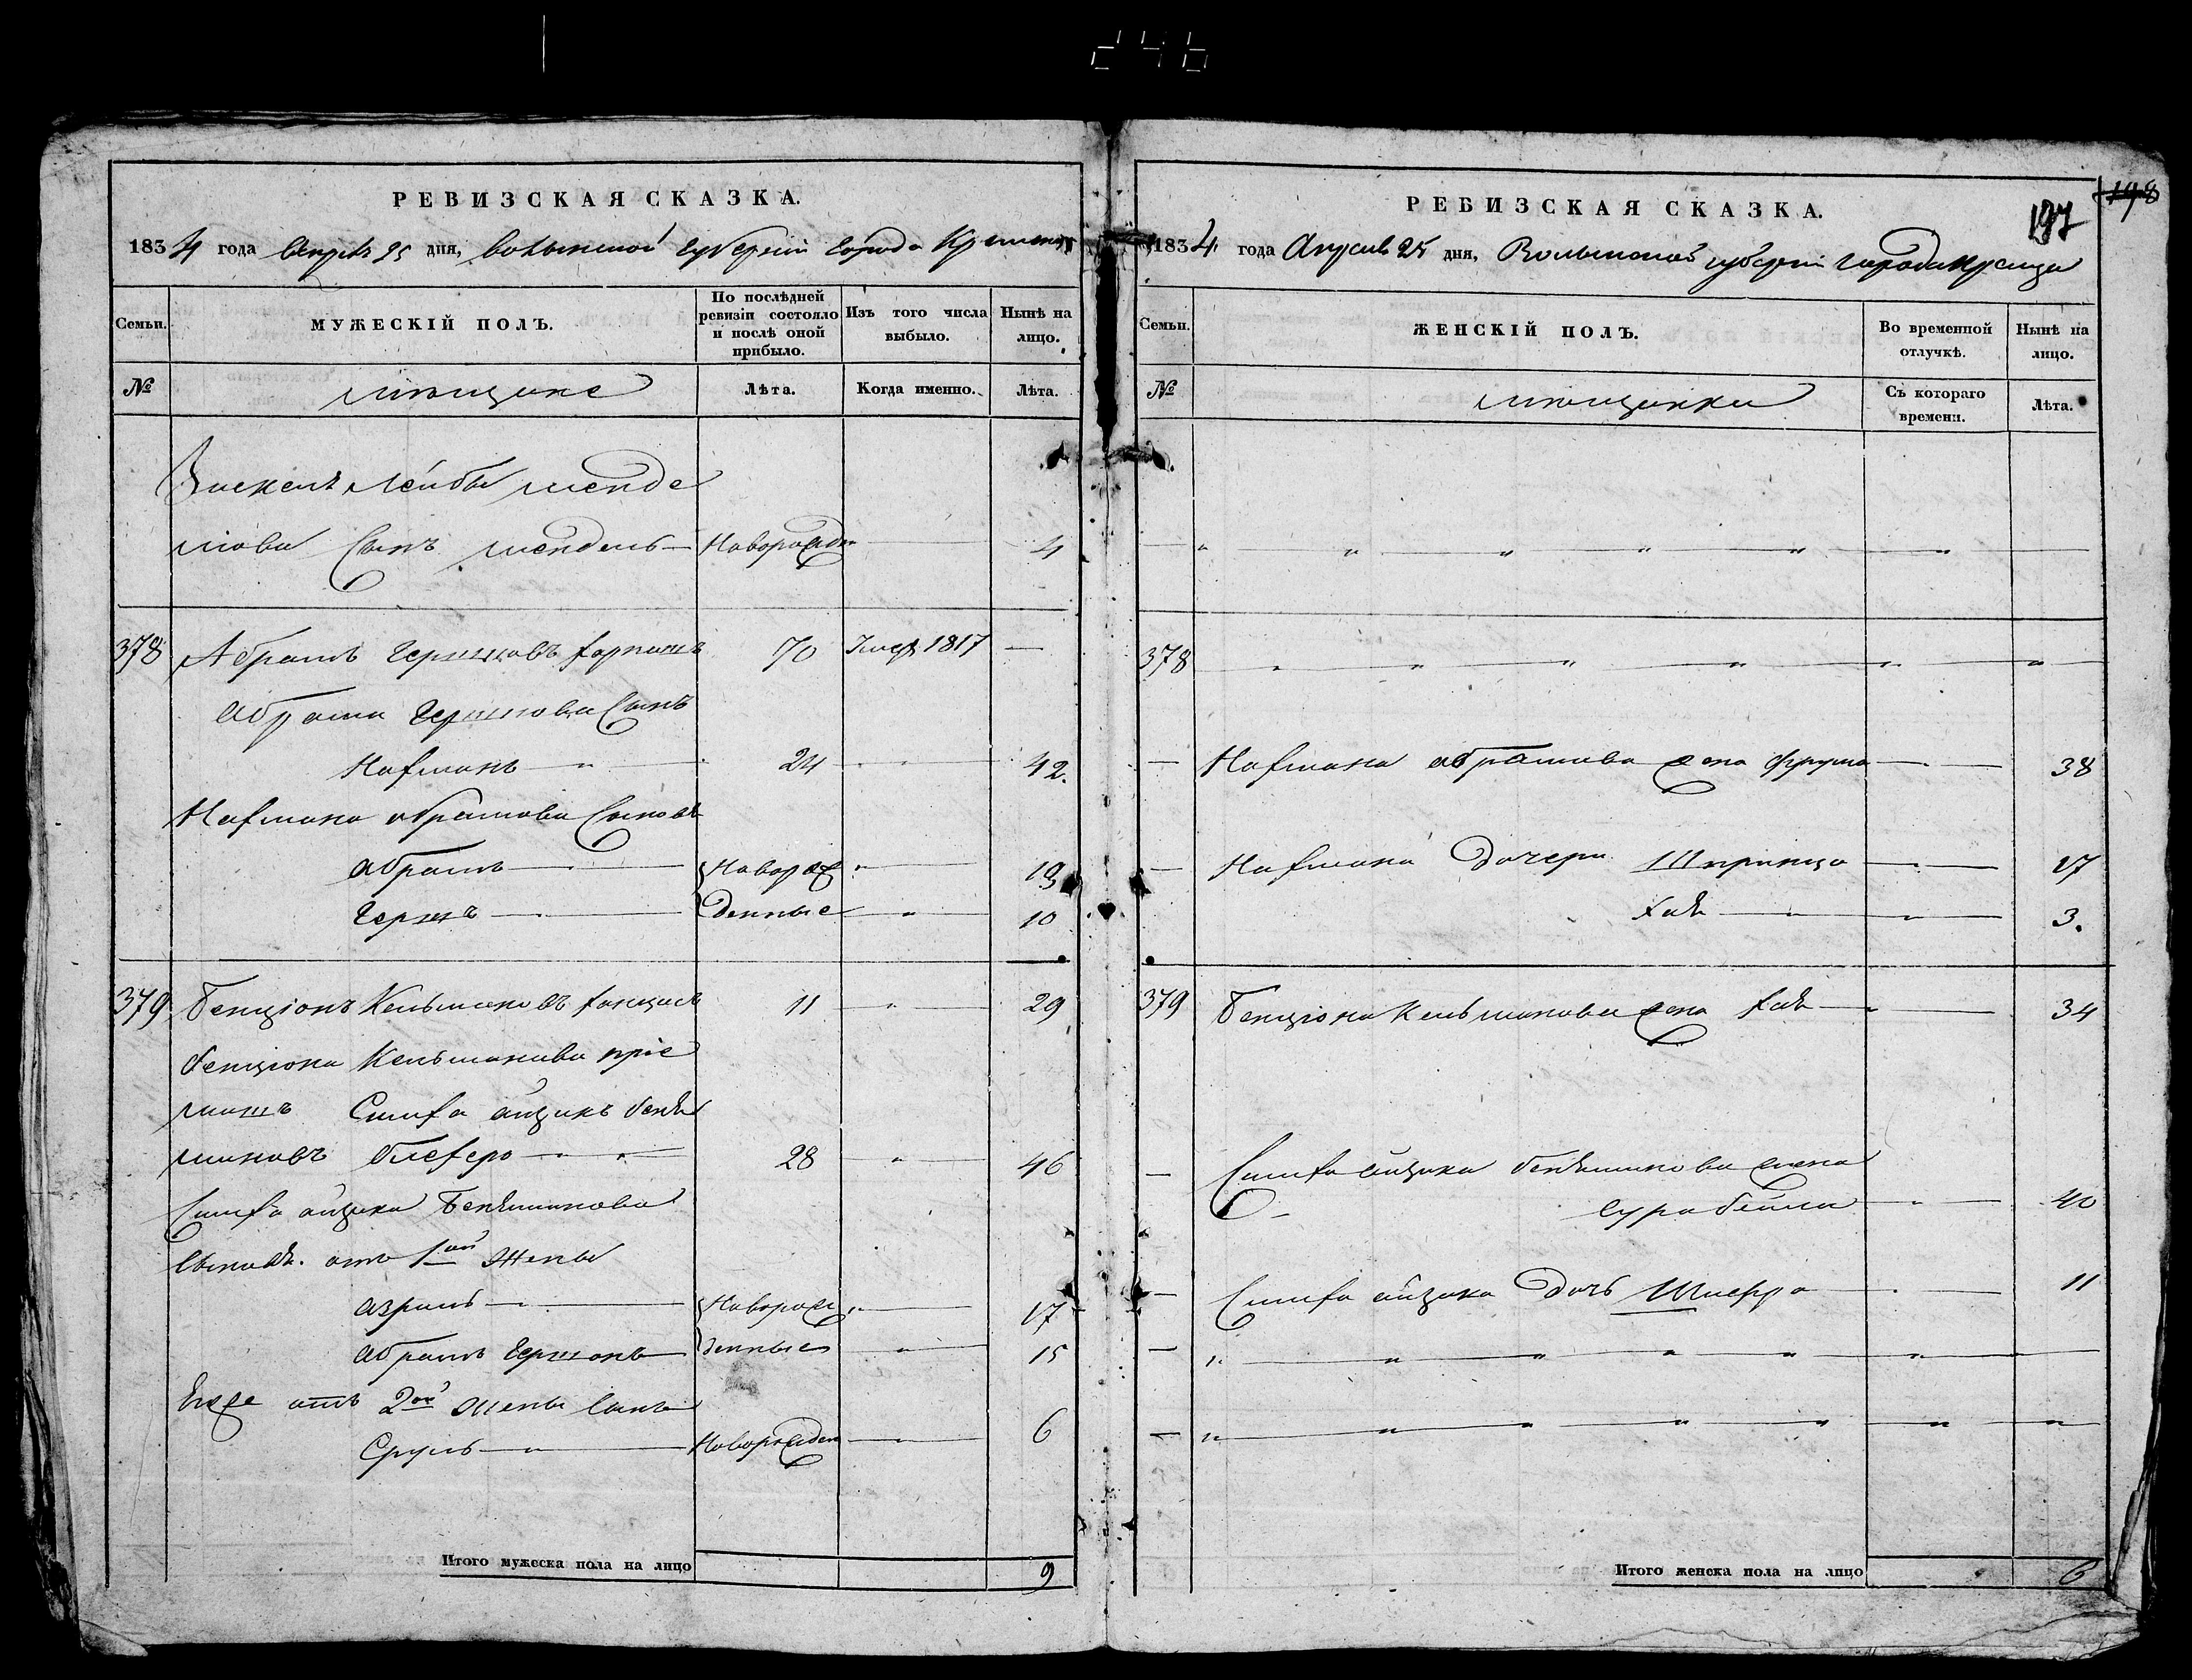 246
РЕВИЗСКАЯ СКАЗКА.
1834 года Апреля 25 дня, Волынской Губернии Города Кременца
Семьи.
МУЖЕСКІЙ ПОЛЪ.
По послѣдней ревизіи состояло и послѣ оной прибыло.
Изъ того числа выбыло.
Нынѣ на лицо.
№
мещане
Лѣта.
Когда именно.
Лѣта.
Лейбы Менде
лова Сынъ Мендель Новорожден 4
378 Абрамъ Гершковъ 70 Умер 1817 —
Абрама Гершкова Сынъ
Нахманъ 24 42.
Нахмана Абрамова Сыновья
Абрамъ Новорож 19
Гершъ денные 10
379 Бенціонъ Кельмановъ 11 29
Бенціона Кельманова пріе
мышъ Симха Айзикъ Бенья
миновъ 28 46
Симха Айзика Беньяминова
Сыновья отъ 1ой Жены
Азриль Новорож 17
Абрамъ Гершонъ денные 15
Его же отъ 2ой Жены Сынъ
Сруль Новорожден 6
Итого мужеска пола на лицо 9
РЕВИЗСКАЯ СКАЗКА.
197
198
1834 года Апреля 25 дня, Волынской губернии города Кременца
Семьи.
ЖЕНСКІЙ ПОЛЪ.
Во временной отлучкѣ.
Нынѣ на лицо.
№
мещанки
Съ котораго времени.
Лѣта.
378
Нахмана Абрамова жена Фрума 38
Нахмана Дочери Шпринца 17
Хая 3.
379 Бенціона Кельманова жена Хая 34
Симха Айзика Беньяминова жена
Сура Бейла 40
Симха Айзика Дочь Шифра 11
Итого женска пола на лицо 6